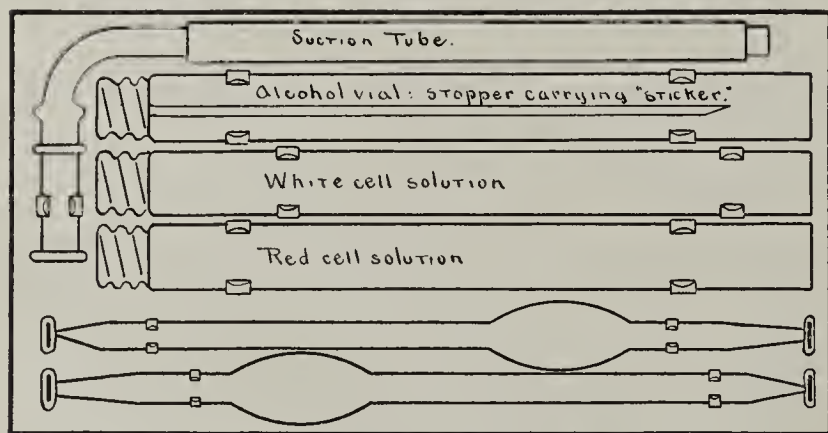 Suction Tube.
Alcohol vial: stopper carrying "sticker."
White cell solution
Red cell solution